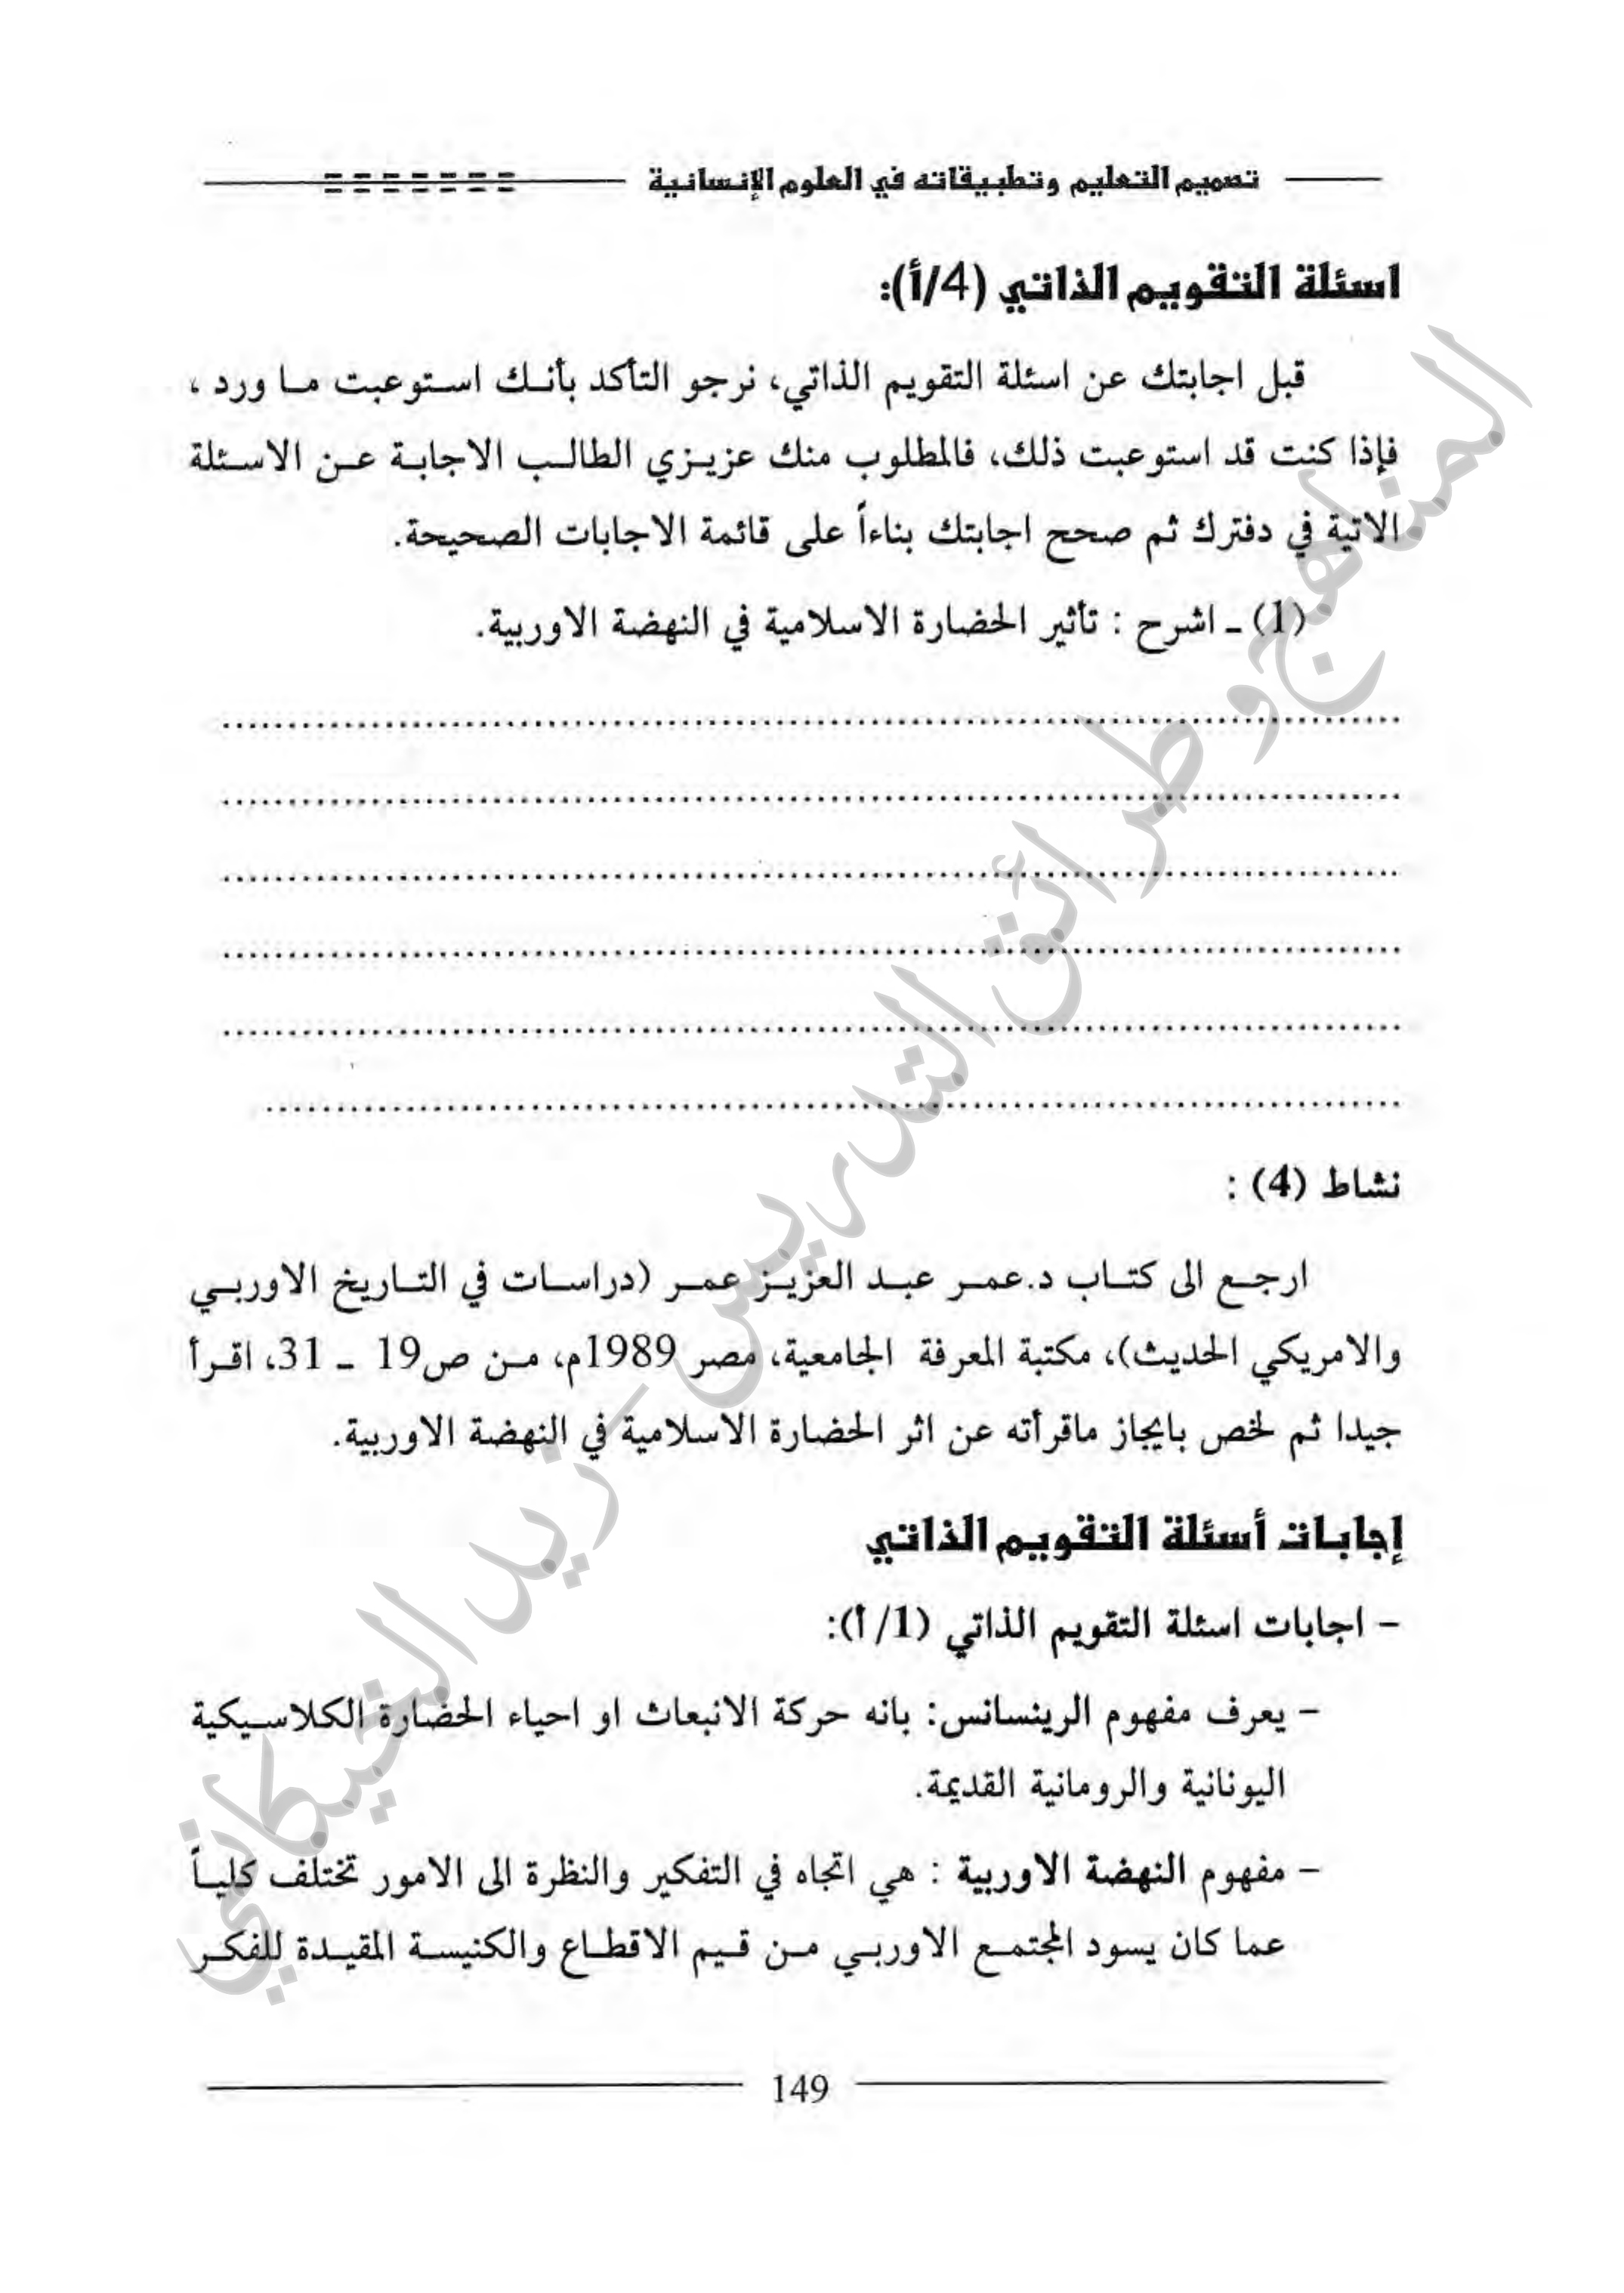 تصميم التعليم وتطبيقاته في العلوم الإنسانية
اسئلة التقويم الذاتي (4/أ):
قبل اجابتك عن اسئلة التقويم الذاتي، نرجو التأكد بأنك استوعبت ما ورد ،
فإذا كنت قد استوعبت ذلك، فالمطلوب منك عزيزي الطالب الاجابة عن الاسئلة
الاتية في دفترك ثم صحح اجابتك بناءاً على قائمة الاجابات الصحيحة.
(1) ـ اشرح : تأثير الحضارة الاسلامية في النهضة الاوربية.
نشاط (4) :
ارجع الى كتاب د.عمر عبد العزيز عمر (دراسات في التاريخ الاوربي
والامريكي الحديث)، مكتبة المعرفة الجامعية، مصر 1989م، من ص19 ـ 31، اقرأ
جيدا ثم لخص بايجاز ماقرأته عن اثر الحضارة الاسلامية في النهضة الاوربية.
إجابات أسئلة التقويم الذاتي
– اجابات اسئلة التقويم الذاتي (1/أ):
– يعرف مفهوم الرينسانس: بانه حركة الانبعاث او احياء الحضارة الكلاسيكية
اليونانية والرومانية القديمة.
– مفهوم النهضة الاوربية : هي اتجاه في التفكير والنظرة الى الامور تختلف كلياً
عما كان يسود المجتمع الاوربي من قيم الاقطاع والكنيسة المقيدة للفكر
149
المناهج وطرائق التدريس – زيد الخيكاني